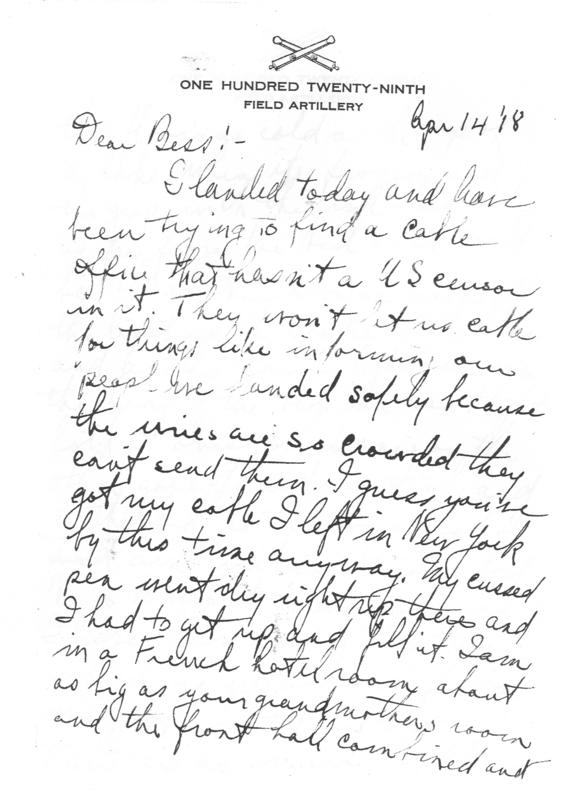 ONE HUNDRED TWENTY-NINTH
FIELD ARTILLERY
Apr 14 '18
Dear Bess:-
I landed today and have
been trying to find a cable
office that hasn't a US censor
in it. They won't let us cable
for things like informing our
people we landed safely because
the wires are so crowded they
can't send them. I guess you've
got my cable I left in New York
by this time anyway. My cussed
pen went dry right up there and
I had to get up and fill it. I am
in a French hotel room about
as big as your grandmothers room
and the front hall combined and